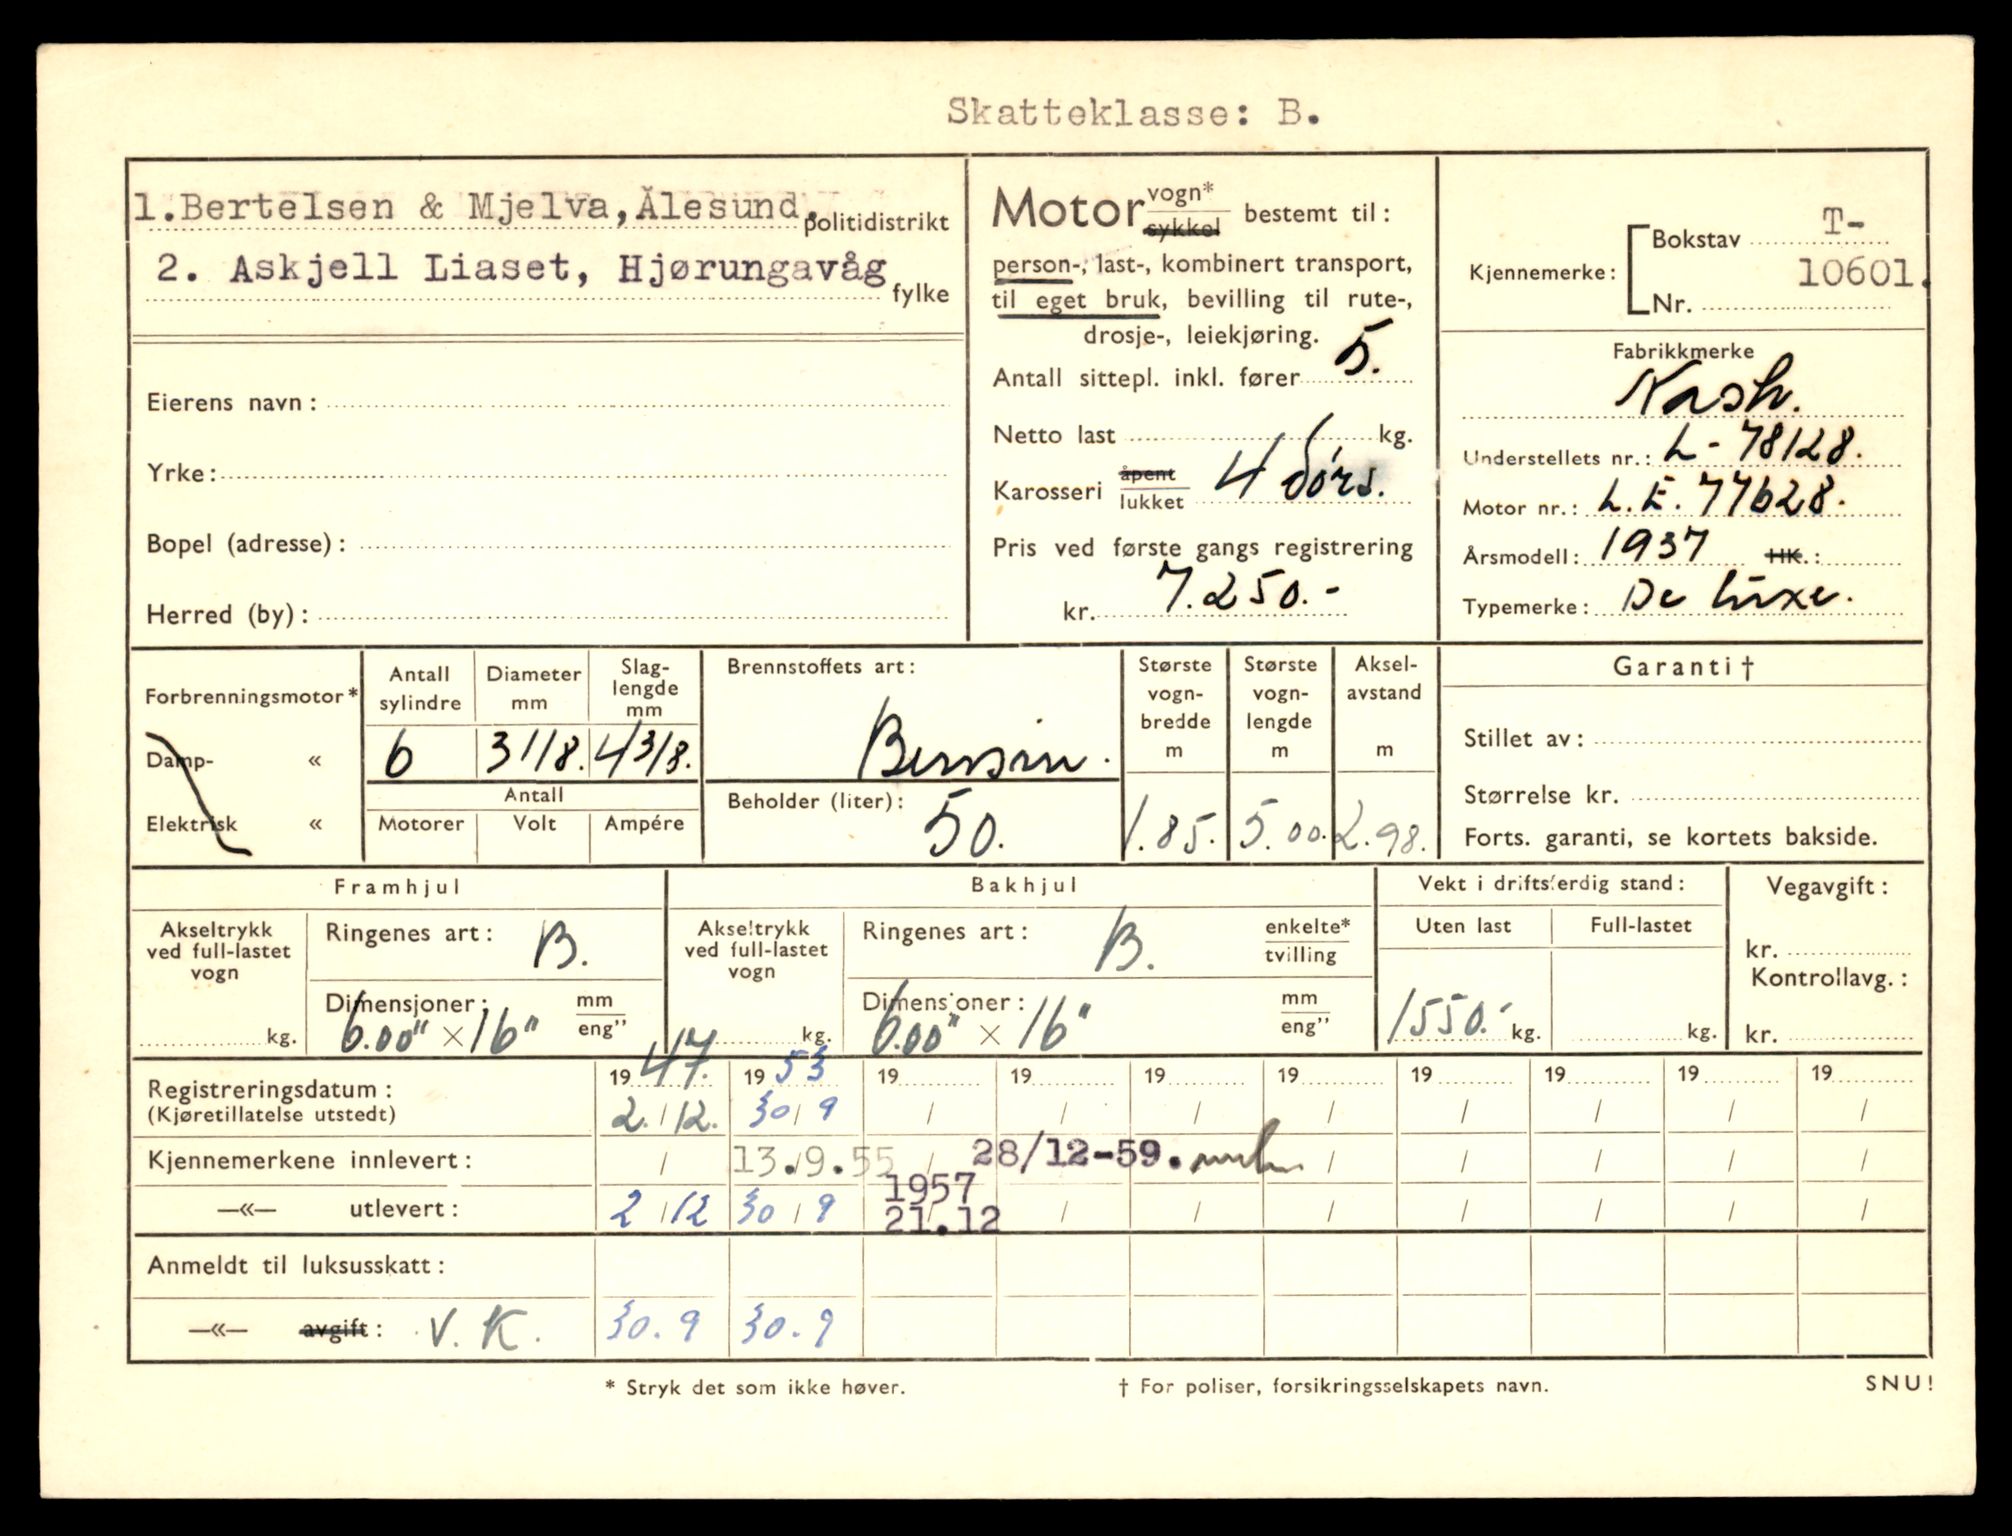 Skatteklasse: B.
1.Bertelsen & Mjelva, Ålesund. politidistrikt
2. Askjell Liaset, Hjørungavåg fylke
Eierens navn:
Yrke:
Bopel (adresse):
Herred (by):
Motor vogn* / sykkel bestemt til:
person-, last-, kombinert transport,
til eget bruk, bevilling til rute-,
drosje-, leiekjøring.
Antall sittepl. inkl. fører 5.
Netto last kg.
Karosseri åpent / lukket 4 dørs.
Pris ved første gangs registrering
kr. 7.250.-
Kjennemerke: Bokstav T-
Nr. 10601.
Fabrikkmerke
Nash.
Understellets nr.: L-78128.
Motor nr.: L.E. 77628.
Årsmodell: 1937 HK.:
Typemerke: De lüxe.
Forbrenningsmotor*
Damp- «
Elektrisk «
Antall sylindre Diameter mm Slag-lengde mm
6 3 1/8. 4 3/8.
Antall
Motorer Volt Ampére
Brennstoffets art:
Bensin.
Beholder (liter): 50.
Største vogn-bredde m Største vogn-lengde m Aksel-avstand m
1.85. 5.00. 2.98.
Garanti †
Stillet av:
Størrelse kr.
Forts. garanti, se kortets bakside.
Framhjul
Akseltrykk ved full-lastet vogn
kg.
Ringenes art: B.
Dimensjoner: mm / eng”
6.00" × 16"
Bakhjul
Akseltrykk ved full-lastet vogn
kg.
Ringenes art: B. enkelte* / tvilling
Dimensjoner: mm / eng”
6.00" × 16"
Vekt i driftsferdig stand:
Uten last Full-lastet
1550.- kg. kg.
Vegavgift:
kr.
Kontrollavg.:
kr.
Registreringsdatum: 1947. 1953 19 19 19 19 19 19 19 19
(Kjøretillatelse utstedt) 2./12. 30/9 / / / / / / / /
Kjennemerkene innlevert: / 13.9.55 / 28/12-59. / / / / /
—«— utlevert: 2/12 30/9 1957 21.12 / / / / / / /
Anmeldt til luksusskatt:
—«— avgift: V.K. 30.9 30.9
* Stryk det som ikke høver. † For poliser, forsikringsselskapets navn. SNU!